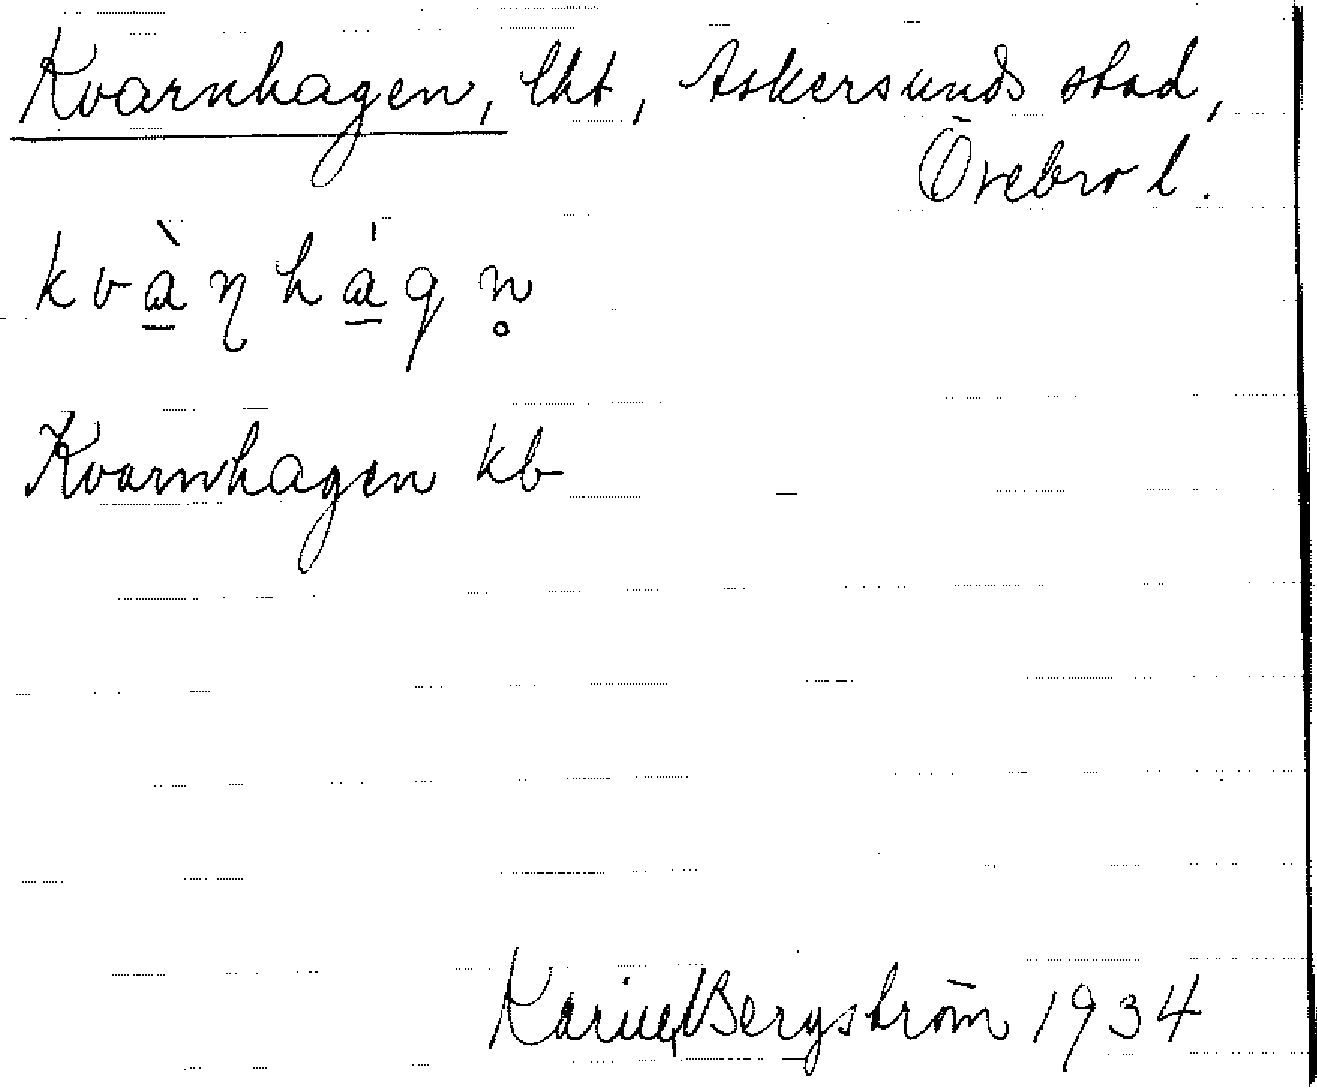 Kvarnhagen, lht, Askersunds stad,
Örebro l.
kvàɳhágn̥
Kvarnhagen kb
Bergström 1934